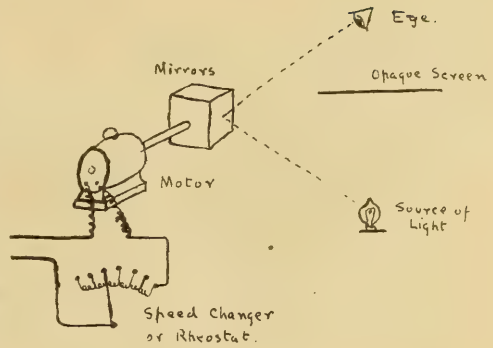 Eye.
Mirrors
Opaque Screen
Motor
Source of
Light
Speed Changer
or Rheostat.